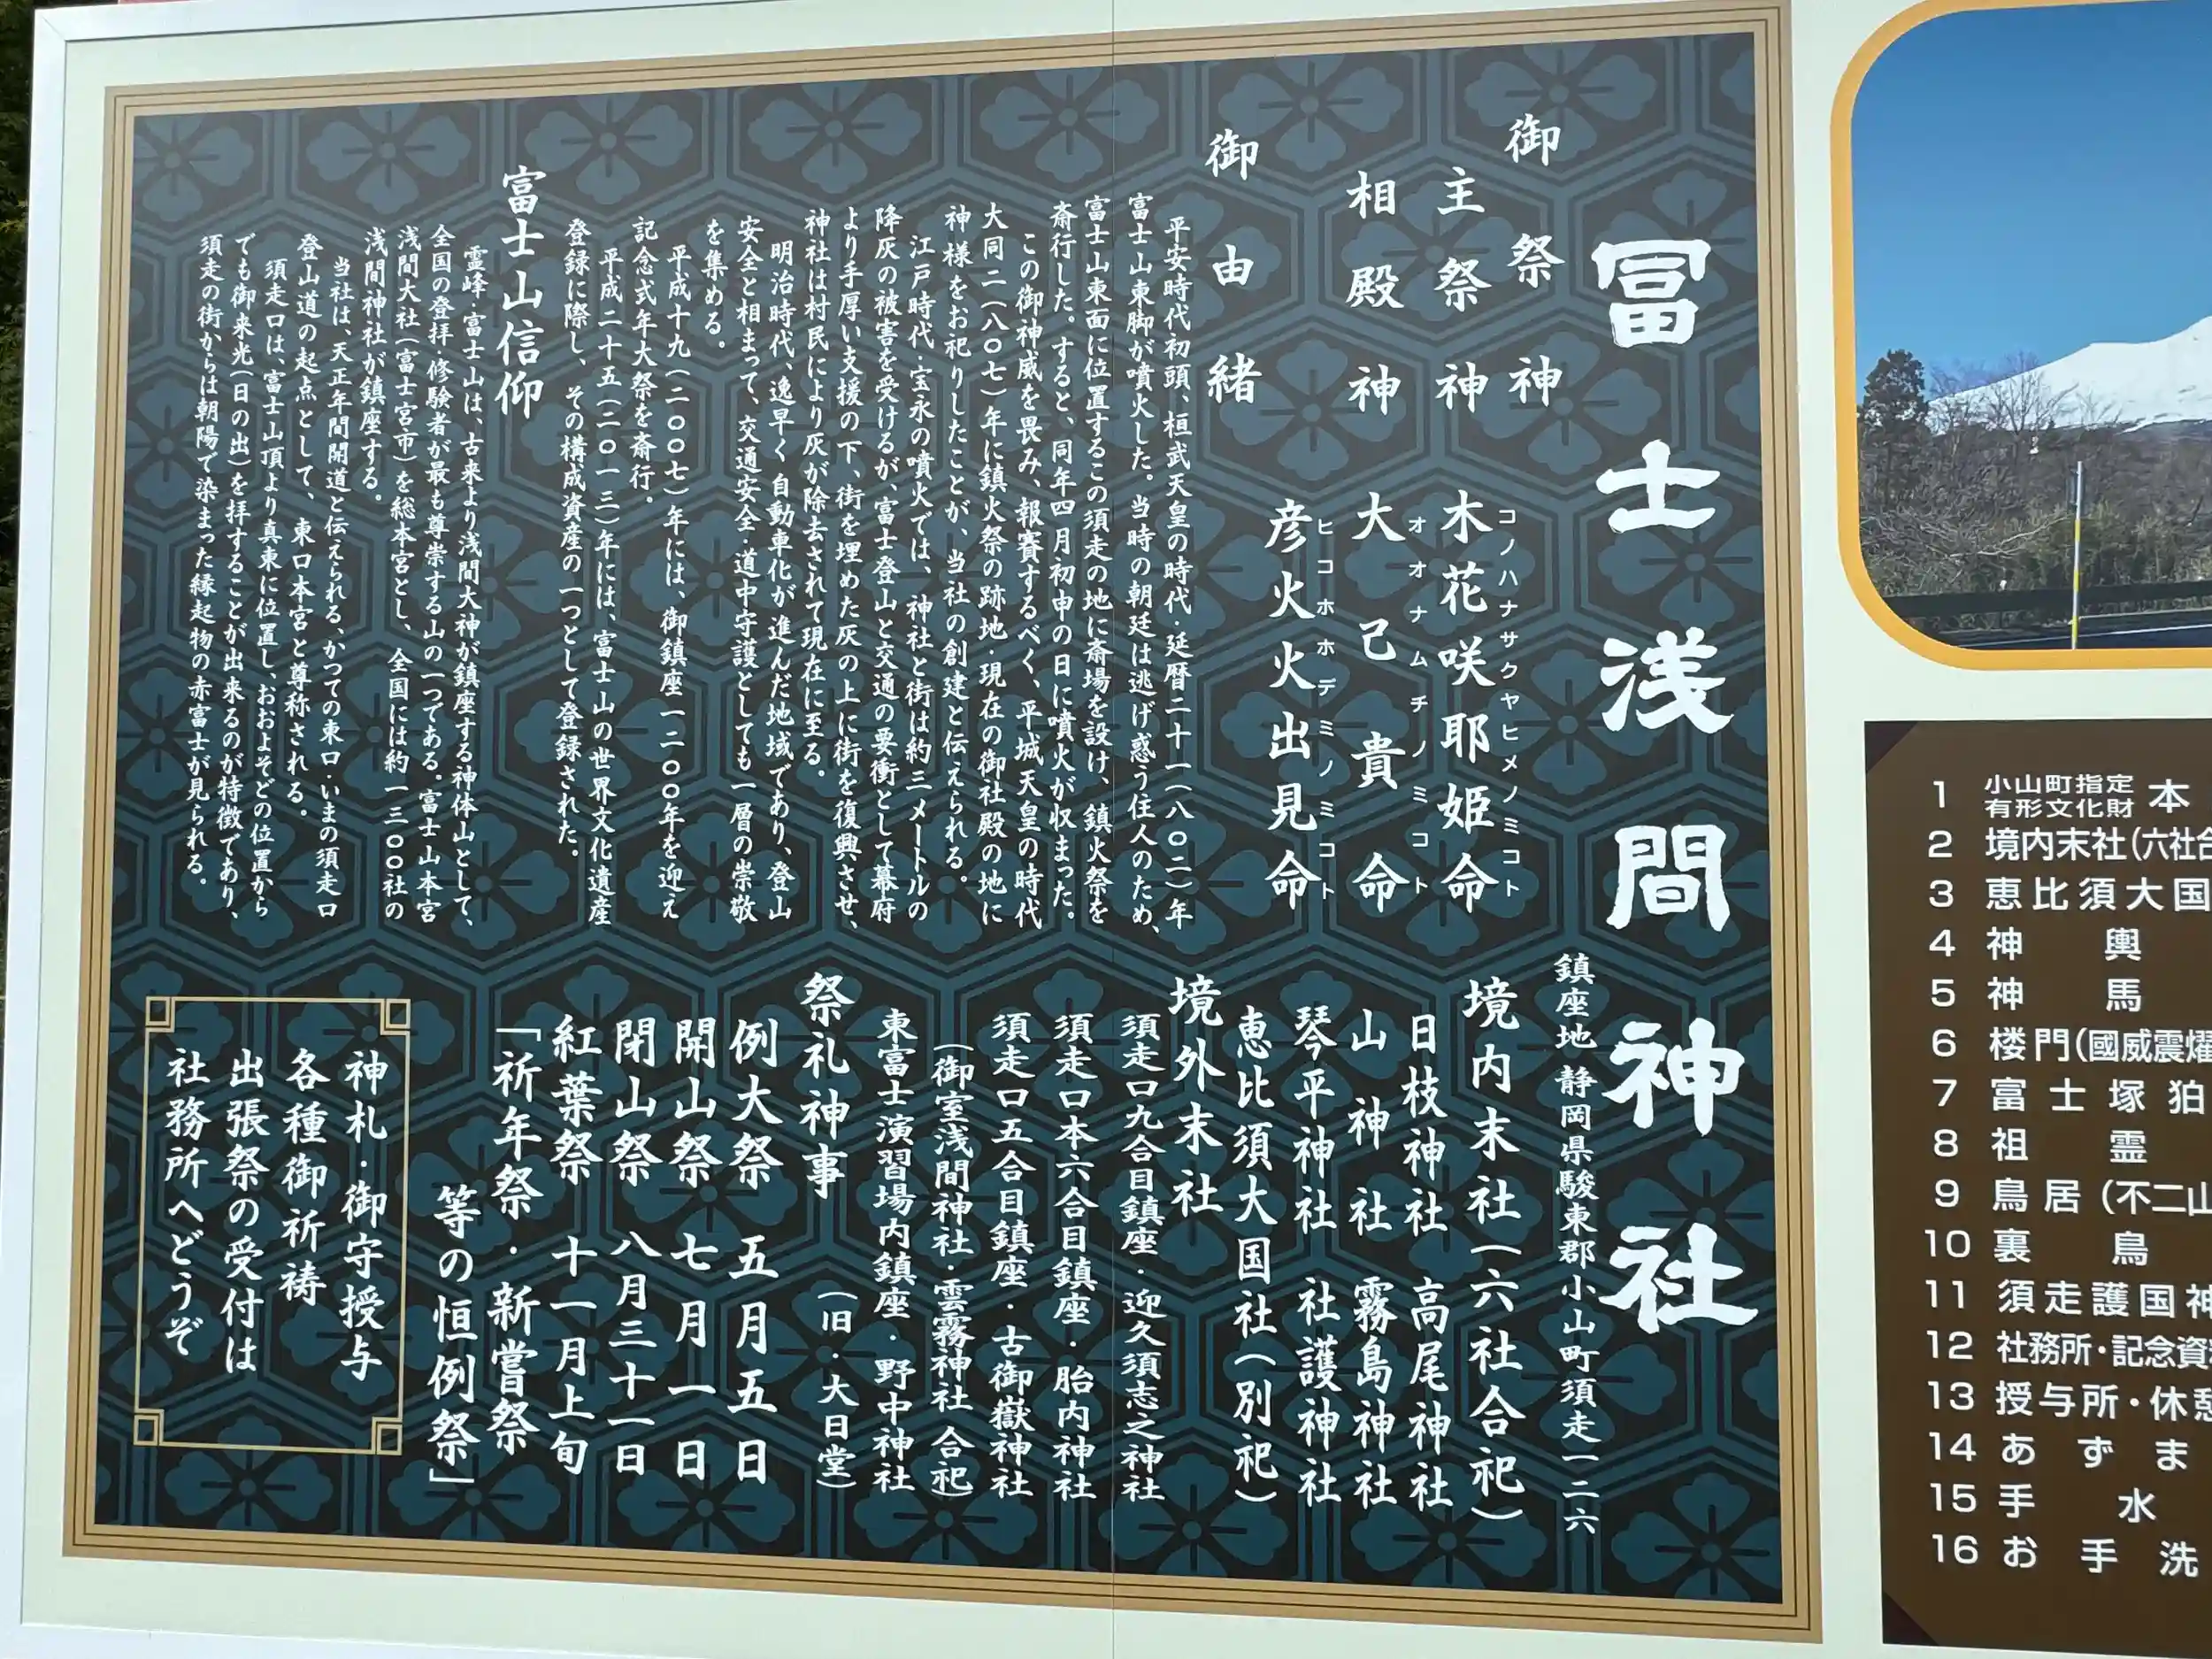 冨士浅間神社
鎮座地 静岡県駿東郡小山町須走一二六
御祭神
主祭神 木花咲耶姫命
コノハナサクヤヒメノミコト
相殿神 大己貴命
オオナムチノミコト
彦火火出見命
ヒコホホデミノミコト
御由緒
平安時代初頭、桓武天皇の時代・延暦二十一(八〇二)年
富士山東脚が噴火した。当時の朝廷は逃げ惑う住人のため、
富士山東面に位置するこの須走の地に斎場を設け、鎮火祭を
斎行した。すると、同年四月初申の日に噴火が収まった。
この御神威を畏み、報賽するべく、平城天皇の時代
大同二(八〇七)年に鎮火祭の跡地・現在の御社殿の地に
神様をお祀りしたことが、当社の創建と伝えられる。
江戸時代・宝永の噴火では、神社と街は約三メートルの
降灰の被害を受けるが、富士登山と交通の要衝として幕府
より手厚い支援の下、街を埋めた灰の上に街を復興させ、
神社は村民により灰が除去されて現在に至る。
明治時代、逸早く自動車化が進んだ地域であり、登山
安全と相まって、交通安全・道中守護としても一層の崇敬
を集める。
平成十九(二〇〇七)年には、御鎮座一二〇〇年を迎え
記念式年大祭を斎行。
平成二十五(二〇一三)年には、富士山の世界文化遺産
登録に際し、その構成資産の一つとして登録された。
富士山信仰
霊峰・富士山は、古来より浅間大神が鎮座する神体山として、
全国の登拝・修験者が最も尊崇する山の一つである。富士山本宮
浅間大社(富士宮市)を総本宮とし、全国には約一三〇〇社の
浅間神社が鎮座する。
当社は、天正年間開道と伝えられる、かつての東口・いまの須走口
登山道の起点として、東口本宮と尊称される。
須走口は、富士山頂より真東に位置し、おおよそどの位置から
でも御来光(日の出)を拝することが出来るのが特徴であり、
須走の街からは朝陽で染まった縁起物の赤富士が見られる。
境内末社(六社合祀)
日枝神社 高尾神社
山神社 霧島神社
琴平神社 社護神社
恵比須大国社(別祀)
境外末社
須走口九合目鎮座・迎久須志之神社
須走口本六合目鎮座・胎内神社
須走口五合目鎮座・古御嶽神社
(御室浅間神社・雲霧神社 合祀)
東富士演習場内鎮座・野中神社
(旧・大日堂)
祭礼神事
例大祭 五月五日
開山祭 七月一日
閉山祭 八月三十一日
紅葉祭 十一月上旬
「祈年祭・新嘗祭
等の恒例祭」
神札・御守授与
各種御祈祷
出張祭の受付は
社務所へどうぞ
1 小山町指定有形文化財 本
2 境内末社(六社合
3 恵比須大国
4 神輿
5 神馬
6 楼門(國威震燿
7 富士塚狛
8 祖霊
9 鳥居(不二山
10 裏鳥
11 須走護国神
12 社務所・記念資
13 授与所・休憩
14 あずま
15 手水
16 お手洗